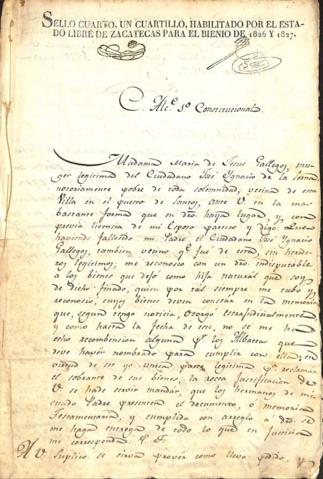 SELLO CUARTO, UN CUARTILLO, HABILITADO POR EL ESTA-
DO LIBRE DE ZACATECAS PARA EL BIENIO DE 1826 Y 1827.
C. Alc.e 1o Constitucional
Madama Maria de Jesus Gallegos, mu-
ger legitima del Ciudadano José Ignacio de la
notoriamente pobre de toda solemnidad, vecina de esta
Villa en el puesto de Santos, ante V. en la mas
bastante forma que en dro. haya lugar, y con
previa licencia de mi Esposo paresco y digo: Que
haviendo fallecido mi Padre el Ciudadano José Ignacio
Gallegos, tambien vecino q.e fué de esta sin here-
deros legitimos, me reconosco con dro. indisputable
a los bienes que dejó como hija natural que soy
de dicho finado, quien por tal siempre me tubo y
reconoció, cuyos bienes deven constar en la memoria
que, segun tengo noticia, otorgó extrajudicialmente
y como hasta la fecha de este, no se me ha
echo recombension alguna p.r los Albaceas que
deve haver nombrado para cumplir con ella; en
virtud de ser yo unica parte legitima p.a reclamar
el sobrante de sus bienes, la recta justificacion de
V. se ha de servir mandar, que los hermanos de mi
Padre presenten el documento o memoria
Testamentaria, y cumplida con arreglo a dro. se
me haga entrega de todo lo que en Justicia
me corresponda
A V. Suplico se sirva proveer como llevo pedido, y